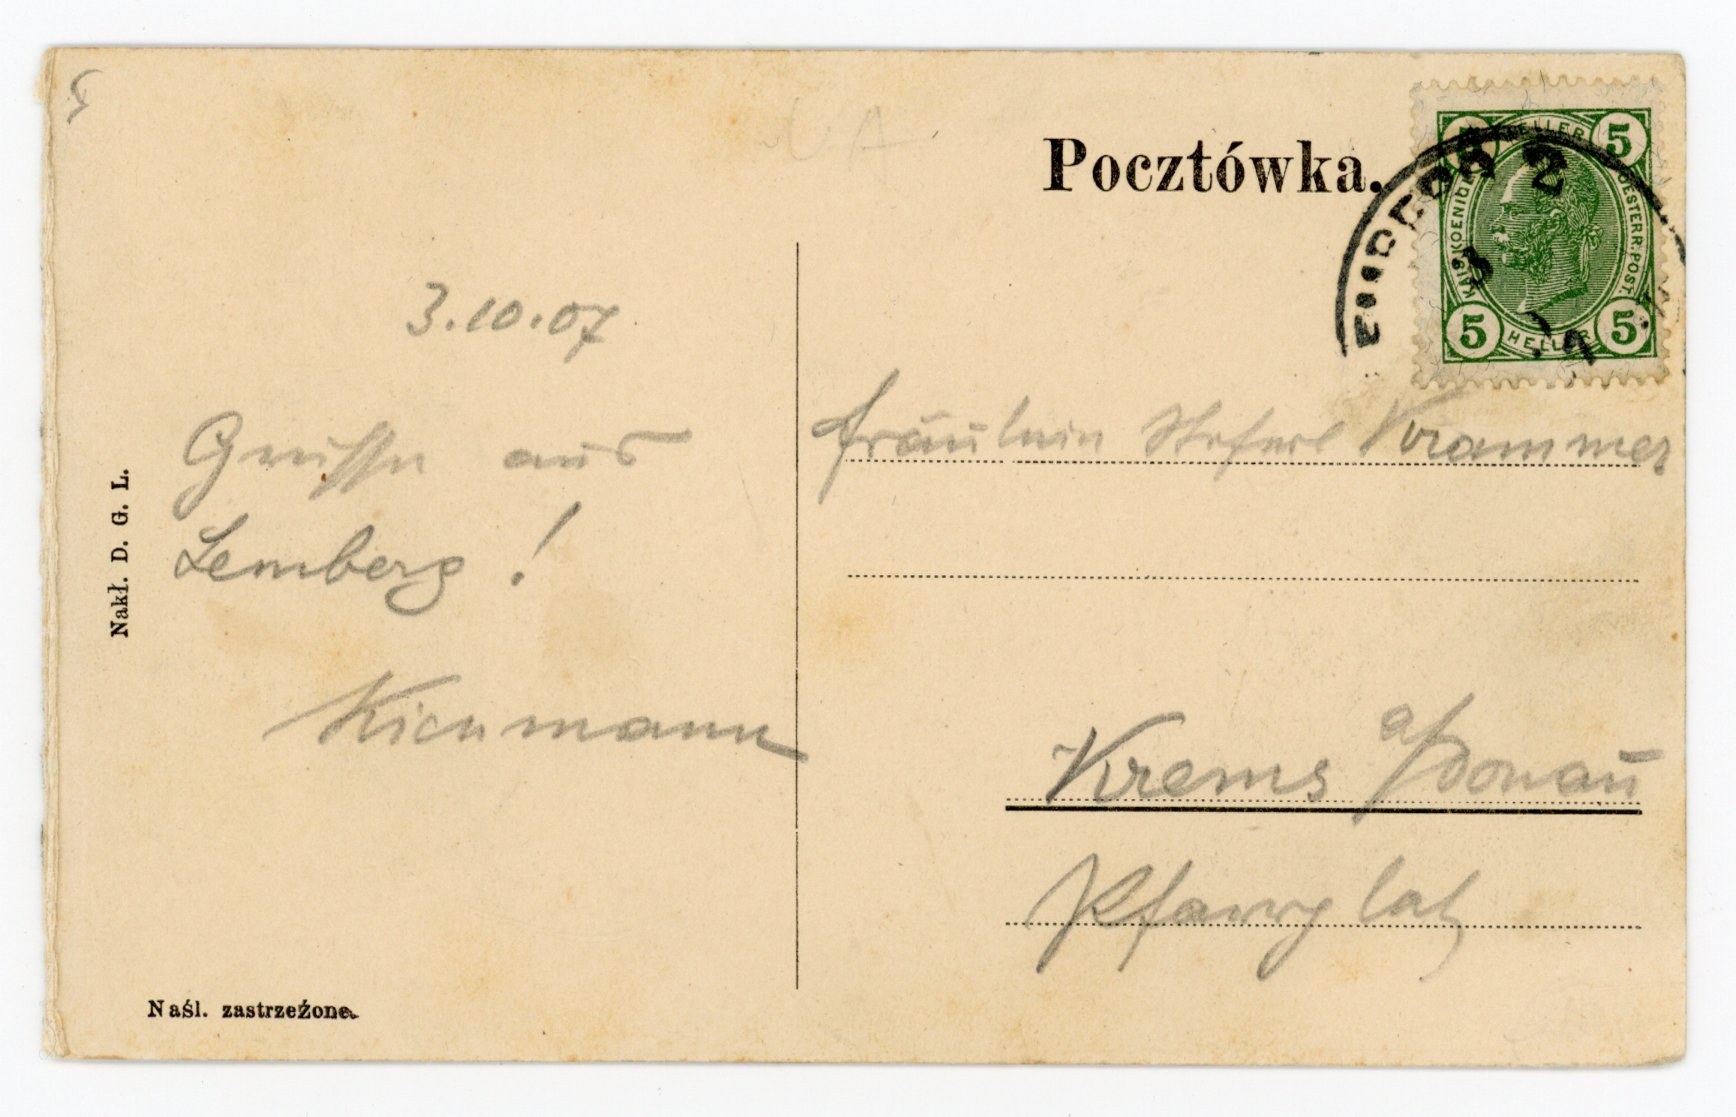 Pocztówka.
5 HELLER 5
KAIS. KOENIGL. OESTERR. POST.
5 HELLER 5
2
3
3.10.07
Grüsse aus
Lemberg!
Fräulein Steferl Krammer
Krems a/Donau
Pfarrplatz
Nakł. D. G. L.
Naśl. zastrzeżone.